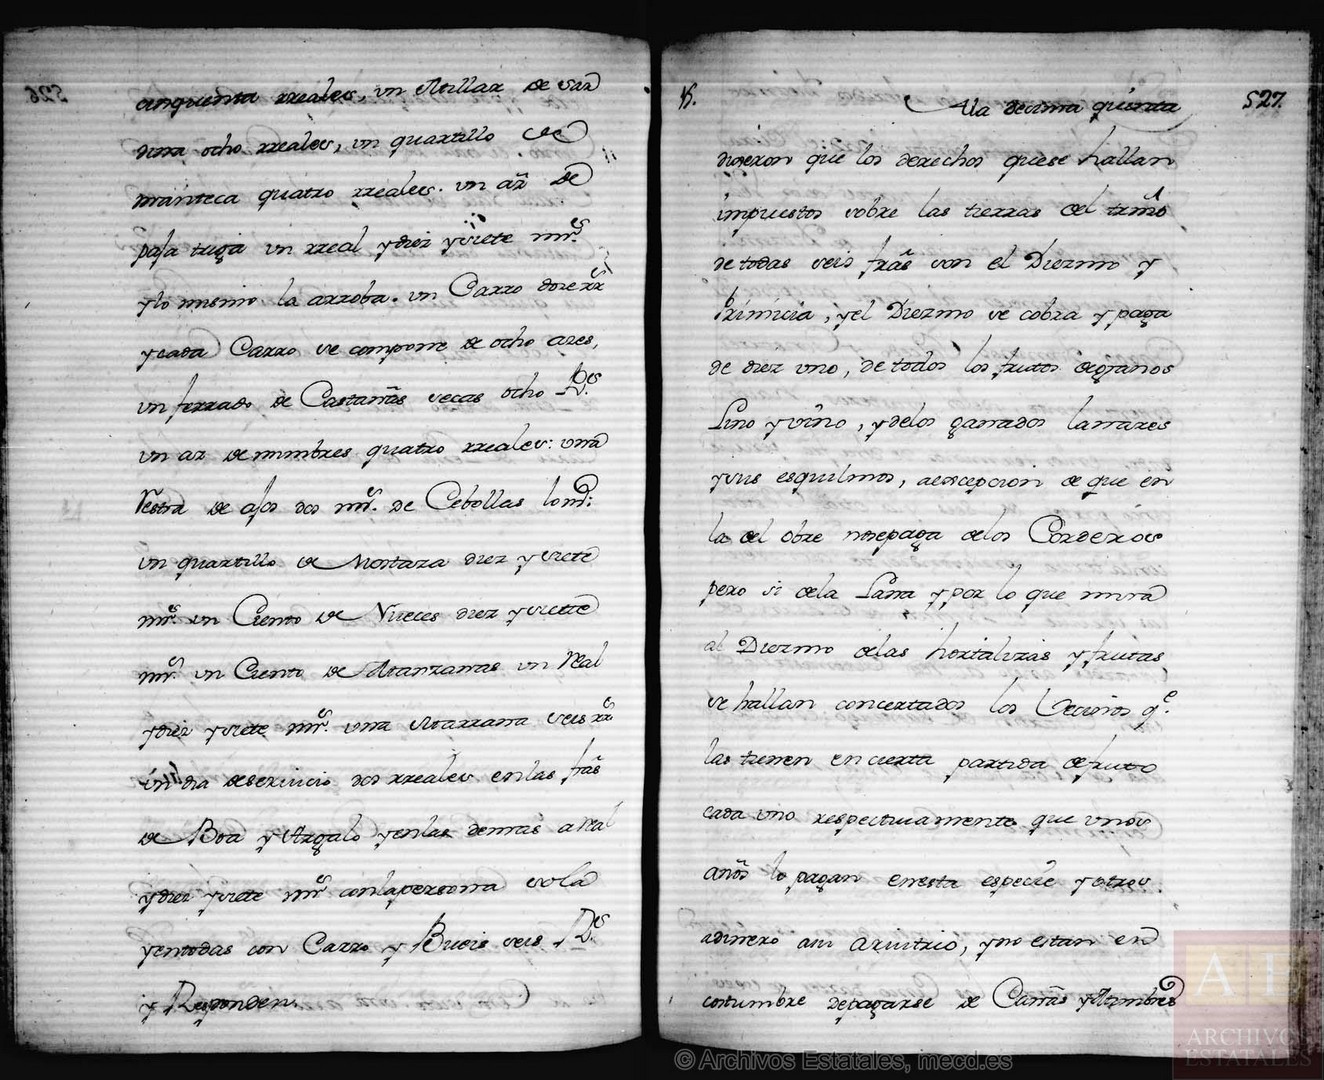 526
cinquenta rreales, un Millar de sar
dina ocho rreales, un quartillo de
manteca quatro rreales. un ar de
paja triga un rreal y diez y siete mrs.
y lo mismo la arroba. un Carro doze rrs
y cada Carro se compone de ocho ares,
un ferrado de Castañas secas ocho Rs.
un ar de mimbres quatro rreales: una
Restra de ajos dos mrs. de Cebollas lo m:
un quartillo de Mostaza diez y siete
mrs. un Ciento de Nueces diez y siette
mrs. un Ciento de Manzanas un Real
y diez y siete mrs. una Marrana seis rrs
un dia de servicio dos rreales en las fras
de Boa y Argalo y en las demas a Real
y diez y siete mrs. con la persona sola
y en todas con Carro y Bueis seis Rs.
y Responden.
15.
527
A la decima quinta
dijeron que los derechos que se hallan
impuestos sobre las tierras del trmo
de todas seis fras son el Diezmo y
Primicia, y el Diezmo se cobra y paga
de diez uno, de todos los frutos de granos
Lino y vino, y de los ganados lanares
y sus esquilmos, a excepcion de que en
la del Obre no se paga de los Corderos
pero si de la Lana y por lo que mira
al Diezmo de las hortalizas y frutas
se hallan concertados los Vecinos qe.
las tienen en cierta partida de fruto
cada uno respectivamente que unos
años lo pagan en esta especie y otros.
a dinero a su arvitrio, y no estan en
costumbre de pagarse de Carnes y Mimbres
© Archivos Estatales, mecd.es
AE
ARCHIVOS
ESTATALES